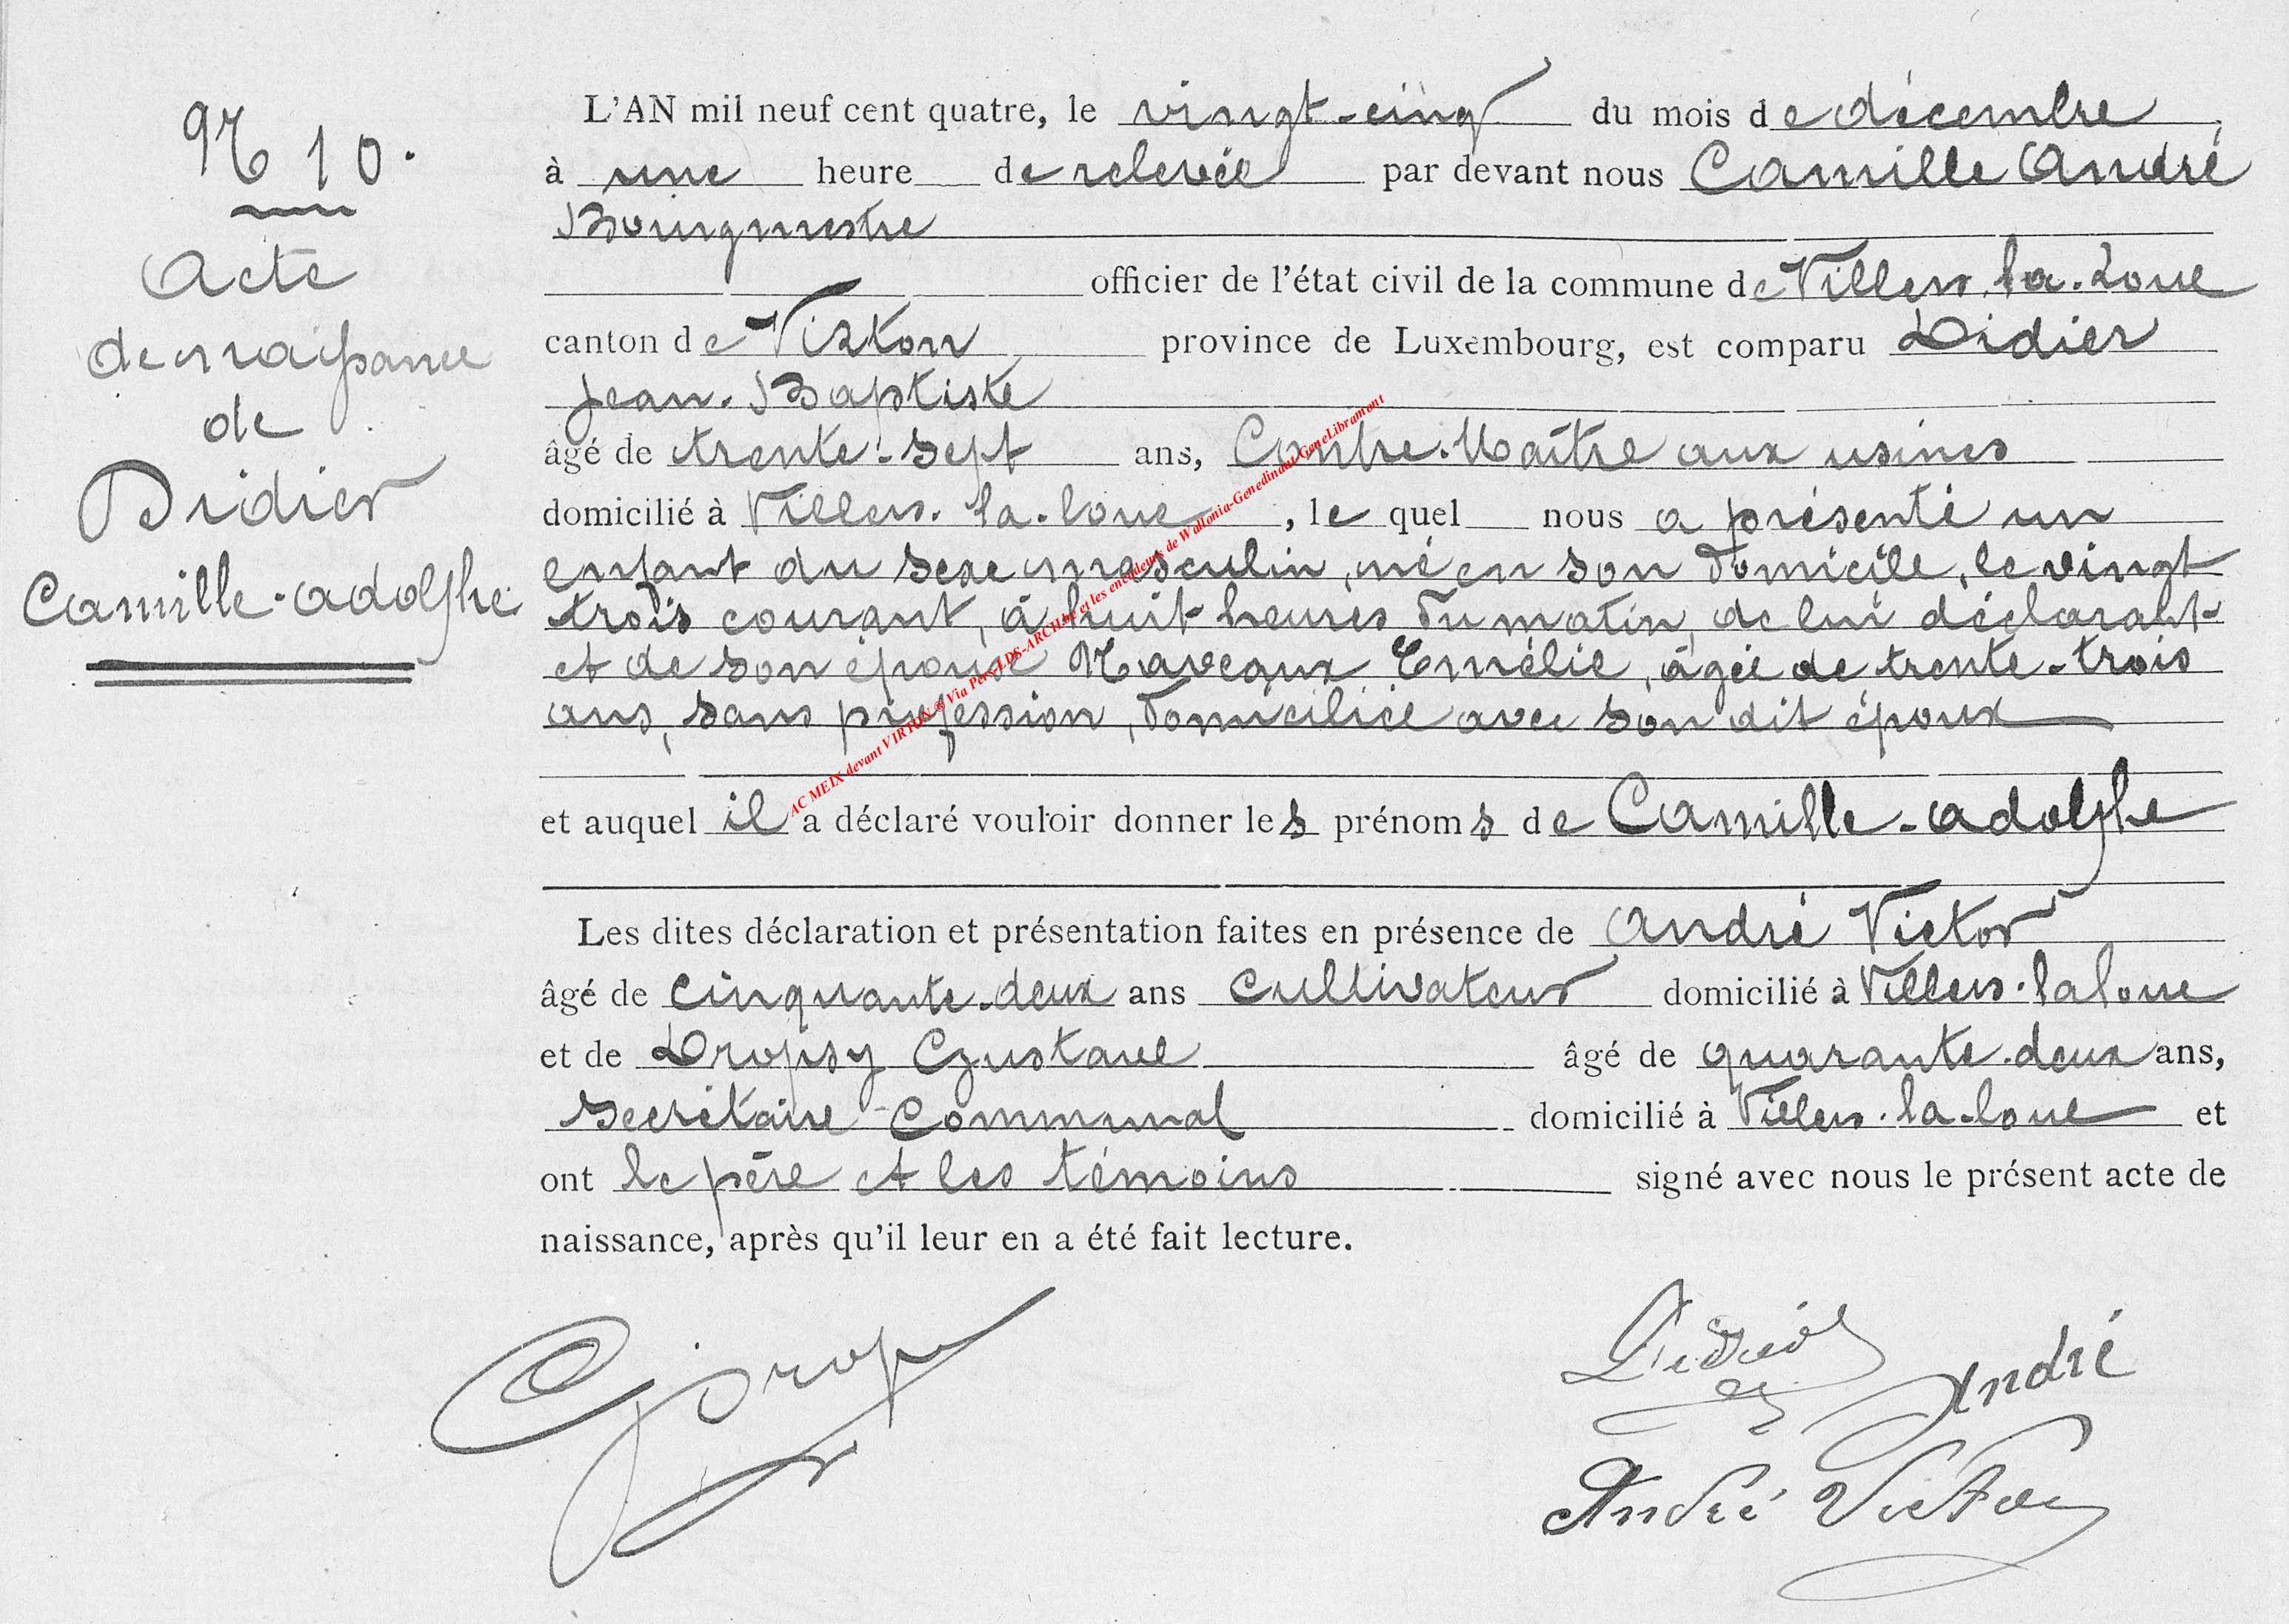 N° 10.
Acte
de naissance
de
Didier
Camille-Adolphe
L'AN mil neuf cent quatre, le vingt-cinq du mois de décembre
à une heure de relevée par devant nous Camille André
Bourgmestre
officier de l'état civil de la commune de Villers-la-Loue
canton de Virton province de Luxembourg, est comparu Didier
Jean-Baptiste
âgé de trente-sept ans, Contre-Maître aux usines
domicilié à Villers-la-loue, le quel nous a présenté un
enfant du sexe masculin, né en son domicile, le vingt
trois courant, à huit heures du matin, de lui déclarant
et de son épouse Naveaux Emélie, âgée de trente-trois
ans, sans profession, domiciliée avec son dit époux
et auquel il a déclaré vouloir donner les prénoms de Camille-Adolphe
Les dites déclaration et présentation faites en présence de André Victor
âgé de cinquante-deux ans cultivateur domicilié à Villers-la loue
et de Dropsy Gustave âgé de quarante-deux ans,
secrétaire communal domicilié à Villers-la-loue et
ont le père et les témoins signé avec nous le présent acte de
naissance, après qu'il leur en a été fait lecture.
Didier
André
André Victor
AC MEIX devant VIRTON @ Via Pers LDS-ARCH.be et les encodeurs de Wallonia-Genedinant-GeneLibramont